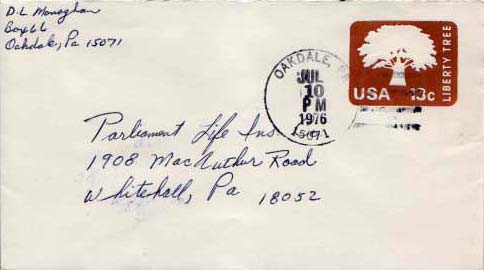 D. L. Monaghan
Box 66
Oakdale, Pa 15071
OAKDALE, PA
JUL
10
PM
1976
15071
USA 13c
LIBERTY TREE
Parliament Life Ins.
1908 MacArthur Road
Whitehall, Pa 18052